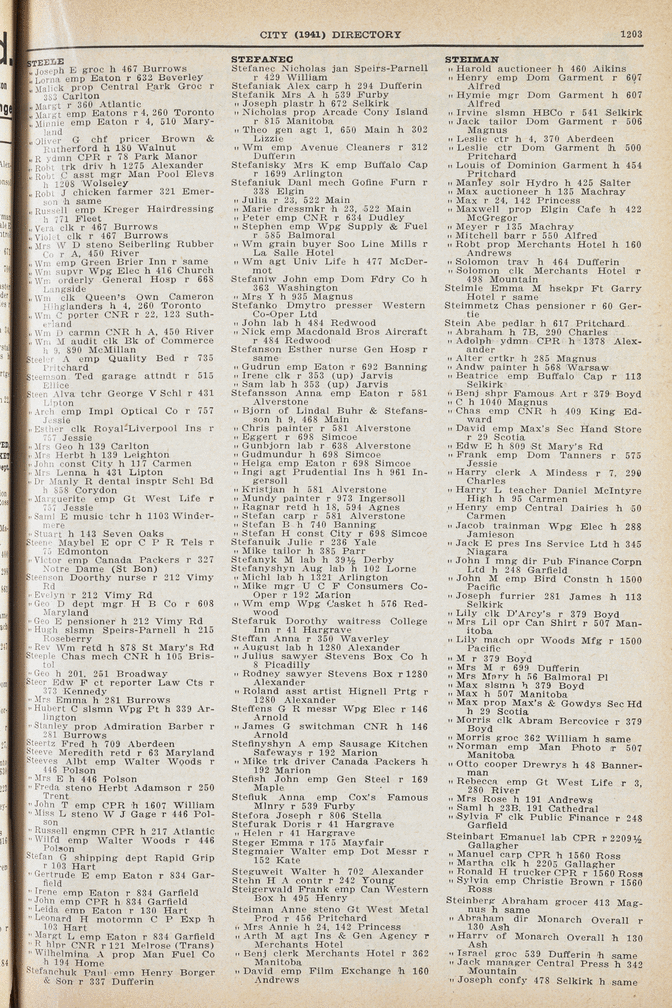 CITY (1941) DIRECTORY
1203
STEELE
" Joseph E groc h 467 Burrows
" Lorna emp Eaton r 632 Beverley
" Malick prop Central Park Groc r
383 Carlton
" Margt r 360 Atlantic
" Margt emp Eatons r 4, 260 Toronto
" Minnie emp Eaton r 4, 510 Mary-
land
" Oliver G chf pricer Brown &
Rutherford h 180 Walnut
" R ydmn CPR r 78 Park Manor
" Robt trk driv h 1275 Alexander
" Robt C asst mgr Man Pool Elevs
h 1208 Wolseley
" Robt J chicken farmer 321 Emer-
son h same
" Russell emp Kreger Hairdressing
h 171 Fleet
" Vera clk r 467 Burrows
" Violet clk r 467 Burrows
" Mrs W D steno Seiberling Rubber
Co r A, 450 River
" Wm emp Green Brier Inn r same
" Wm supvr Wpg Elec h 416 Church
" Wm orderly General Hosp r 668
Langside
" Wm clk Queen's Own Cameron
Highlanders h 4, 260 Toronto
" Wm C porter CNR r 22, 123 Suth-
erland
" Wm D carmn CNR h A, 450 River
" Wm M audit clk Bk of Commerce
h 9, 890 McMillan
Steeler A emp Quality Bed r 735
Pritchard
Steenson Ted garage attndt r 515
Ellice
Steen Alva tchr George V Schl r 431
Lipton
" Arch emp Impl Optical Co r 757
Jessie
" Esther clk Royal-Liverpool Ins r
757 Jessie
" Mrs Geo h 139 Carlton
" Mrs Herbt h 139 Leighton
" John const City h 117 Carmen
" Mrs Lenna h 431 Lipton
" Dr Manly R dental insptr Schl Bd
h 858 Corydon
" Marguerite emp Gt West Life r
757 Jessie
" Saml E music tchr h 1103 Winder-
mere
" Stuart h 143 Seven Oaks
Steene Maybel E opr C P R Tels r
75 Edmonton
" Victor emp Canada Packers r 327
Notre Dame (St Bon)
Steenson Doorthy nurse r 212 Vimy
Rd
" Evelyn r 212 Vimy Rd
" Geo D dept mgr H B Co r 608
Maryland
" Geo E pensioner h 212 Vimy Rd
" Hugh slsmn Speirs-Parnell h 215
Roseberry
" Rev Wm retd h 878 St Mary's Rd
Steeple Chas mech CNR h 105 Bris-
tol
" Geo h 201, 251 Broadway
Steer Edw F ct reporter Law Cts r
373 Kennedy
" Mrs Emma h 281 Burrows
" Hubert C slsmn Wpg Pt h 339 Ar-
lington
" Stanley prop Admiration Barber r
281 Burrows
Steertz Fred h 709 Aberdeen
Steeve Meredith retd r 63 Maryland
Steeves Albt emp Walter Woods r
446 Polson
" Mrs E h 446 Polson
" Freda steno Herbt Adamson r 250
Trent
" John T emp CPR h 1607 William
" Miss L steno W J Gage r 446 Pol-
son
" Russell engmn CPR h 217 Atlantic
" Wilfd emp Walter Woods r 446
Polson
Stefan G shipping dept Rapid Grip
r 103 Hart
" Gertrude E emp Eaton r 834 Gar-
field
" Irene emp Eaton r 834 Garfield
" John emp CPR h 834 Garfield
" Leida emp Eaton r 130 Hart
" Leonard H motormn C P Exp h
103 Hart
" Margt L emp Eaton r 834 Garfield
" R hlpr CNR r 121 Melrose (Trans)
" Wilhelmina A prop Man Fuel Co
h 194 Home
Stefanchuk Paul emp Henry Borger
& Son r 337 Dufferin
STEFANEC
Stefanec Nicholas jan Speirs-Parnell
r 429 William
Stefaniak Alex carp h 294 Dufferin
Stefanik Mrs A h 539 Furby
" Joseph plastr h 672 Selkirk
" Nicholas prop Arcade Cony Island
r 815 Manitoba
" Theo gen agt 1, 650 Main h 302
Lizzie
" Wm emp Avenue Cleaners r 312
Dufferin
Stefanisky Mrs K emp Buffalo Cap
r 1699 Arlington
Stefaniuk Danl mech Gofine Furn r
338 Elgin
" Julia r 23, 522 Main
" Marie dressmkr h 23, 522 Main
" Peter emp CNR r 634 Dudley
" Stephen emp Wpg Supply & Fuel
r 585 Balmoral
" Wm grain buyer Soo Line Mills r
La Salle Hotel
" Wm agt Univ Life h 477 McDer-
mot
Stefaniw John emp Dom Fdry Co h
363 Washington
" Mrs Y h 935 Magnus
Stefanko Dmytro presser Western
Co-Oper Ltd
" John lab h 484 Redwood
" Nick emp Macdonald Bros Aircraft
r 484 Redwood
Stefanson Esther nurse Gen Hosp r
same
" Gudrun emp Eaton r 692 Banning
" Irene clk r 353 (up) Jarvis
" Sam lab h 353 (up) Jarvis
Stefansson Anna emp Eaton r 581
Alverstone
" Bjorn of Lindal Buhr & Stefans-
son h 9, 468 Main
" Chris painter r 581 Alverstone
" Eggert r 698 Simcoe
" Gunbjorn lab r 638 Alverstone
" Gudmundur h 698 Simcoe
" Helga emp Eaton r 698 Simcoe
" Ingi agt Prudential Ins h 961 In-
gersoll
" Kristjan h 581 Alverstone
" Mundy painter r 973 Ingersoll
" Ragnar retd h 18, 594 Agnes
" Stefan carp r 581 Alverstone
" Stefan B h 740 Banning
" Stefan H const City r 698 Simcoe
Stefanuik Julie r 236 Yale
" Mike tailor h 385 Parr
Stefanyk M lab h 39½ Derby
Stefanyshyn Aug lab h 102 Lorne
" Michl lab h 1321 Arlington
" Mike mgr U C F Consumers Co-
Oper r 192 Marion
" Wm emp Wpg Casket h 576 Red-
wood
Stefaruk Dorothy waitress College
Inn r 41 Hargrave
Steffan Anna r 350 Waverley
" August lab h 1280 Alexander
" Julius sawyer Stevens Box Co h
8 Picadilly
" Rodney sawyer Stevens Box r 1280
Alexander
" Roland asst artist Hignell Prtg r
1280 Alexander
Steffens G R messr Wpg Elec r 146
Arnold
" James G switchman CNR h 146
Arnold
Stefinyshyn A emp Sausage Kitchen
Safeways r 192 Marion
" Mike trk driver Canada Packers h
192 Marion
Stefish John emp Gen Steel r 169
Maple
Stefiuk Anna emp Cox's Famous
Mlnry r 539 Furby
Stefora Joseph r 806 Stella
Stefurak Doris r 41 Hargrave
" Helen r 41 Hargrave
Steger Emma r 175 Mayfair
Stegmaier Walter emp Dot Messr r
152 Kate
Steguweit Walter h 702 Alexander
Stehn H A contr r 242 Young
Steigerwald Frank emp Can Western
Box h 495 Henry
Steiman Anne steno Gt West Metal
Prod r 456 Pritchard
" Mrs Annie h 24, 142 Princess
" Arth M agt Ins & Gen Agency r
Merchants Hotel
" Benj clerk Merchants Hotel r 362
Manitoba
" David emp Film Exchange h 160
Andrews
STEIMAN
" Harold auctioneer h 460 Aikins
" Henry emp Dom Garment r 607
Alfred
" Hymie mgr Dom Garment h 607
Alfred
" Irvine slsmn HBCo r 541 Selkirk
" Jack tailor Dom Garment r 506
Magnus
" Leslie ctr h 4, 370 Aberdeen
" Leslie ctr Dom Garment h 500
Pritchard
" Louis of Dominion Garment h 454
Pritchard
" Manley solr Hydro h 425 Salter
" Max auctioneer h 135 Machray
" Max r 24, 142 Princess
" Maxwell prop Elgin Cafe h 422
McGregor
" Meyer r 135 Machray
" Mitchell barr r 550 Alfred
" Robt prop Merchants Hotel h 160
Andrews
" Solomon trav h 464 Dufferin
" Solomon clk Merchants Hotel r
498 Mountain
Steimle Emma M hsekpr Ft Garry
Hotel r same
Steimmetz Chas pensioner r 60 Ger-
tie
Stein Abe pedlar h 617 Pritchard
" Abraham h 7B, 290 Charles
" Adolph ydmn CPR h 1378 Alex-
ander
" Alter crtkr h 285 Magnus
" Andw painter h 568 Warsaw
" Beatrice emp Buffalo Cap r 113
Selkirk
" Benj shpr Famous Art r 379 Boyd
" C h 1040 Magnus
" Chas emp CNR h 409 King Ed-
ward
" David emp Max's Sec Hand Store
r 29 Scotia
" Edw E h 809 St Mary's Rd
" Frank emp Dom Tanners r 575
Jessie
" Harry clerk A Mindess r 7, 290
Charles
" Harry L teacher Daniel McIntyre
High h 95 Carmen
" Henry emp Central Dairies h 50
Carmen
" Jacob trainman Wpg Elec h 288
Jamieson
" Jack E pres Ins Service Ltd h 345
Niagara
" John I mng dir Pub Finance Corpn
Ltd h 248 Garfield
" John M emp Bird Constn h 1500
Pacific
" Joseph furrier 281 James h 113
Selkirk
" Lily clk D'Arcy's r 379 Boyd
" Mrs Lil opr Can Shirt r 507 Man-
itoba
" Lily mach opr Woods Mfg r 1500
Pacific
" M r 379 Boyd
" Mrs M r 699 Dufferin
" Mrs Mary h 56 Balmoral Pl
" Max slsmn h 379 Boyd
" Max h 507 Manitoba
" Max prop Max's & Gowdys Sec Hd
h 29 Scotia
" Morris clk Abram Bercovice r 379
Boyd
" Morris groc 362 William h same
" Norman emp Man Photo r 507
Manitoba
" Otto cooper Drewrys h 48 Banner-
man
" Rebecca emp Gt West Life r 3,
280 River
" Mrs Rose h 191 Andrews
" Saml h 23B, 191 Cathedral
" Sylvia F clk Public Finance r 248
Garfield
Steinbart Emanuel lab CPR r 2209½
Gallagher
" Manuel carp CPR h 1560 Ross
" Martha clk h 2205 Gallagher
" Ronald H trucker CPR r 1560 Ross
" Sylvia emp Christie Brown r 1560
Ross
Steinberg Abraham grocer 413 Mag-
nus h same
" Abraham dir Monarch Overall r
130 Ash
" Harry of Monarch Overall h 130
Ash
" Israel groc 539 Dufferin h same
" Jack manager Central Press h 342
Mountain
" Joseph confy 478 Selkirk h same